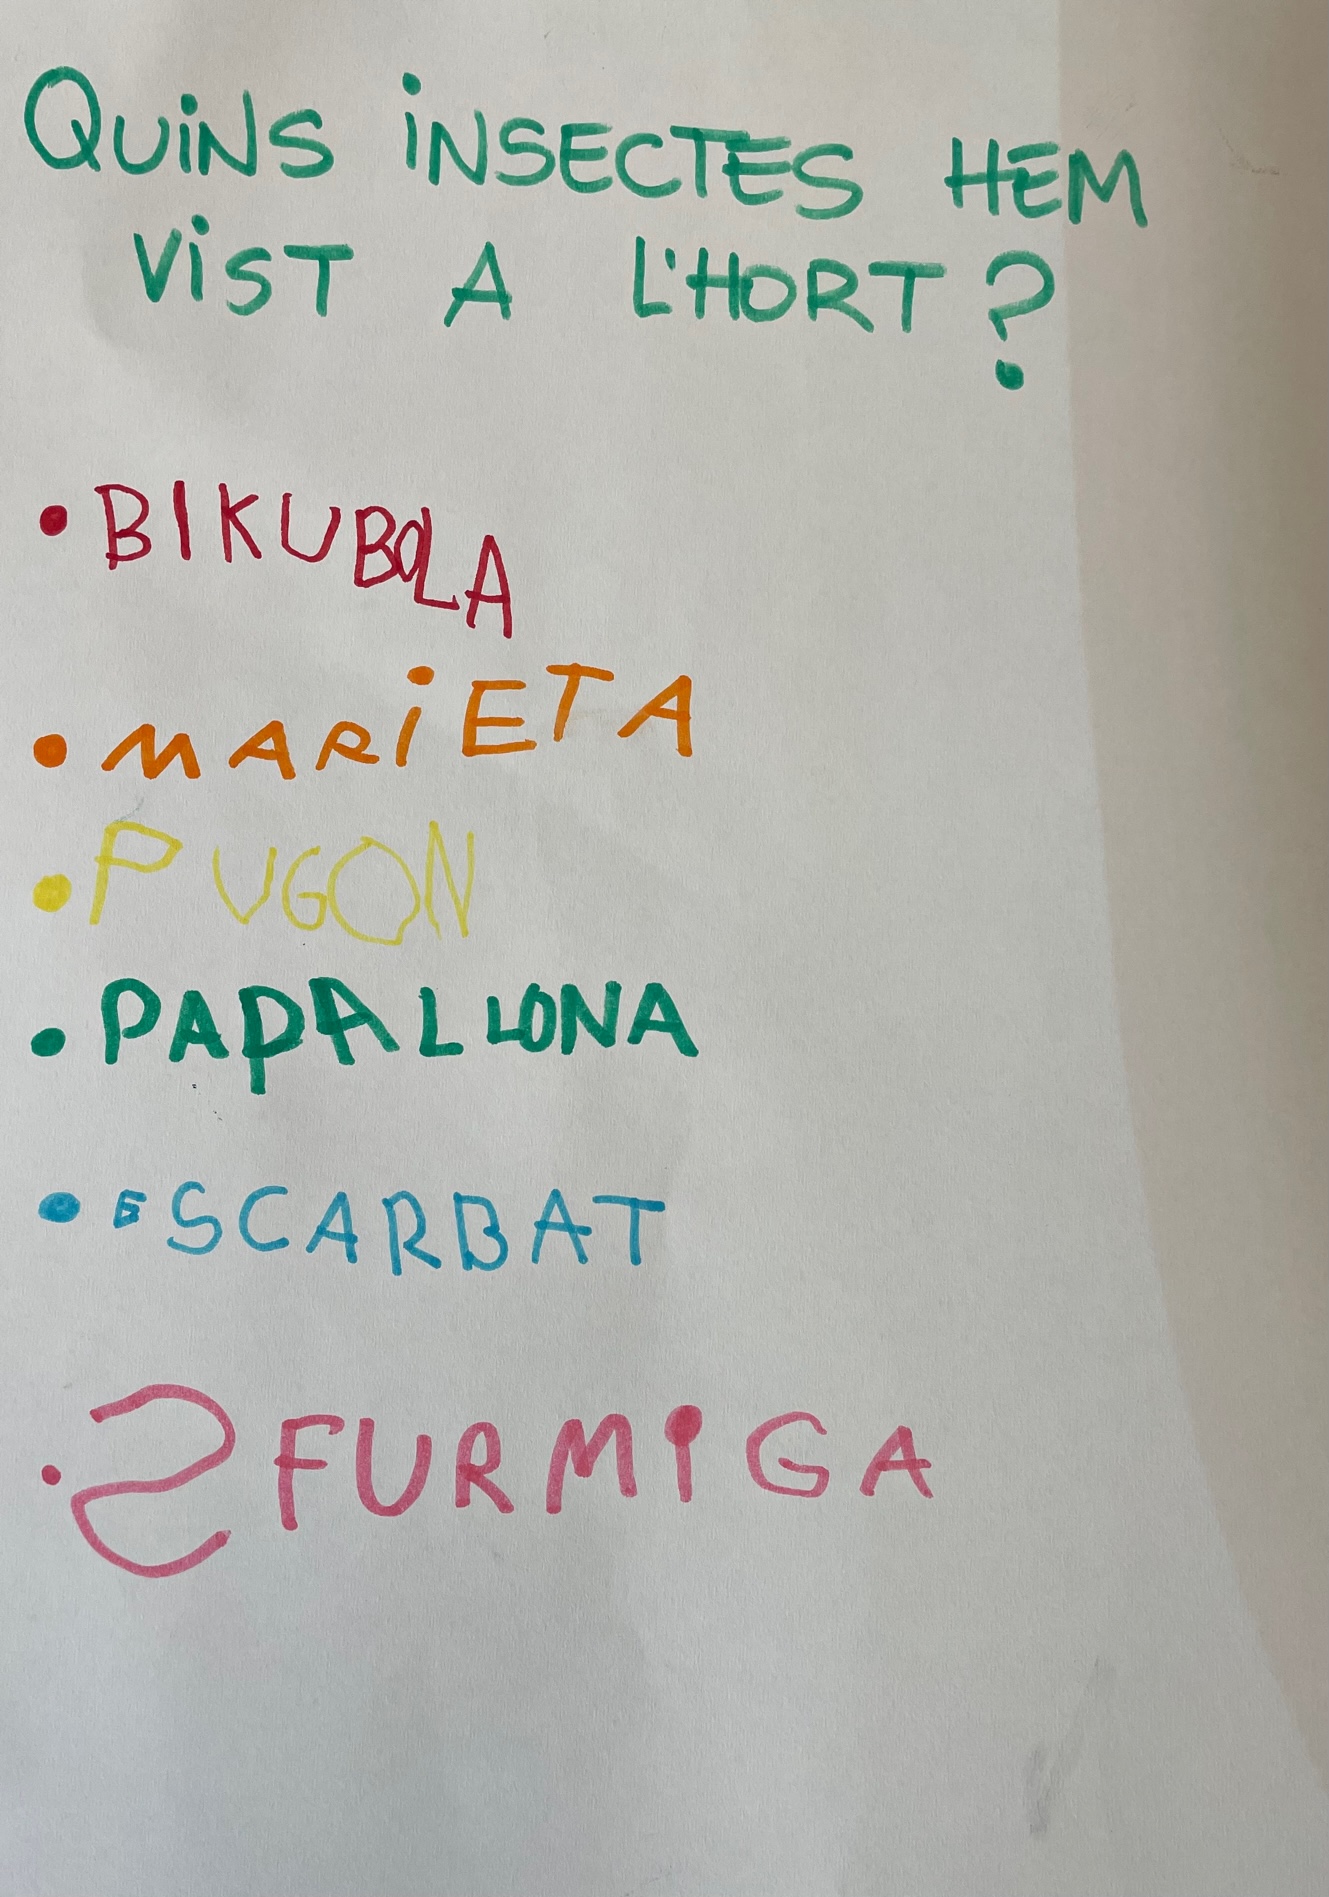 QUiNS iNSECTES HEM
ViST A L'HORT?
• BIKUBOLA
• MARiETA
• PUGON
• PAPALLONA
• ESCARBAT
• S FURMIGA